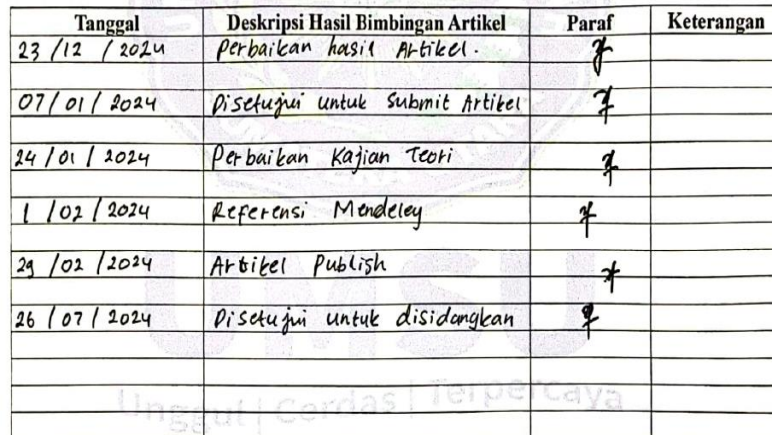 Tanggal Deskripsi Hasil Bimbingan Artikel Paraf Keterangan
23 /12 / 2024 Perbaikan hasil Artikel.
07/ 01 / 2024 Disetujui untuk Submit Artikel
24 / 01 / 2024 Perbaikan Kajian Teori
1 / 02 / 2024 Referensi Mendeley
29 / 02 / 2024 Artikel Publish
26 / 07 / 2024 Disetujui untuk disidangkan
UMSU
Unggul | Cerdas | Terpercaya